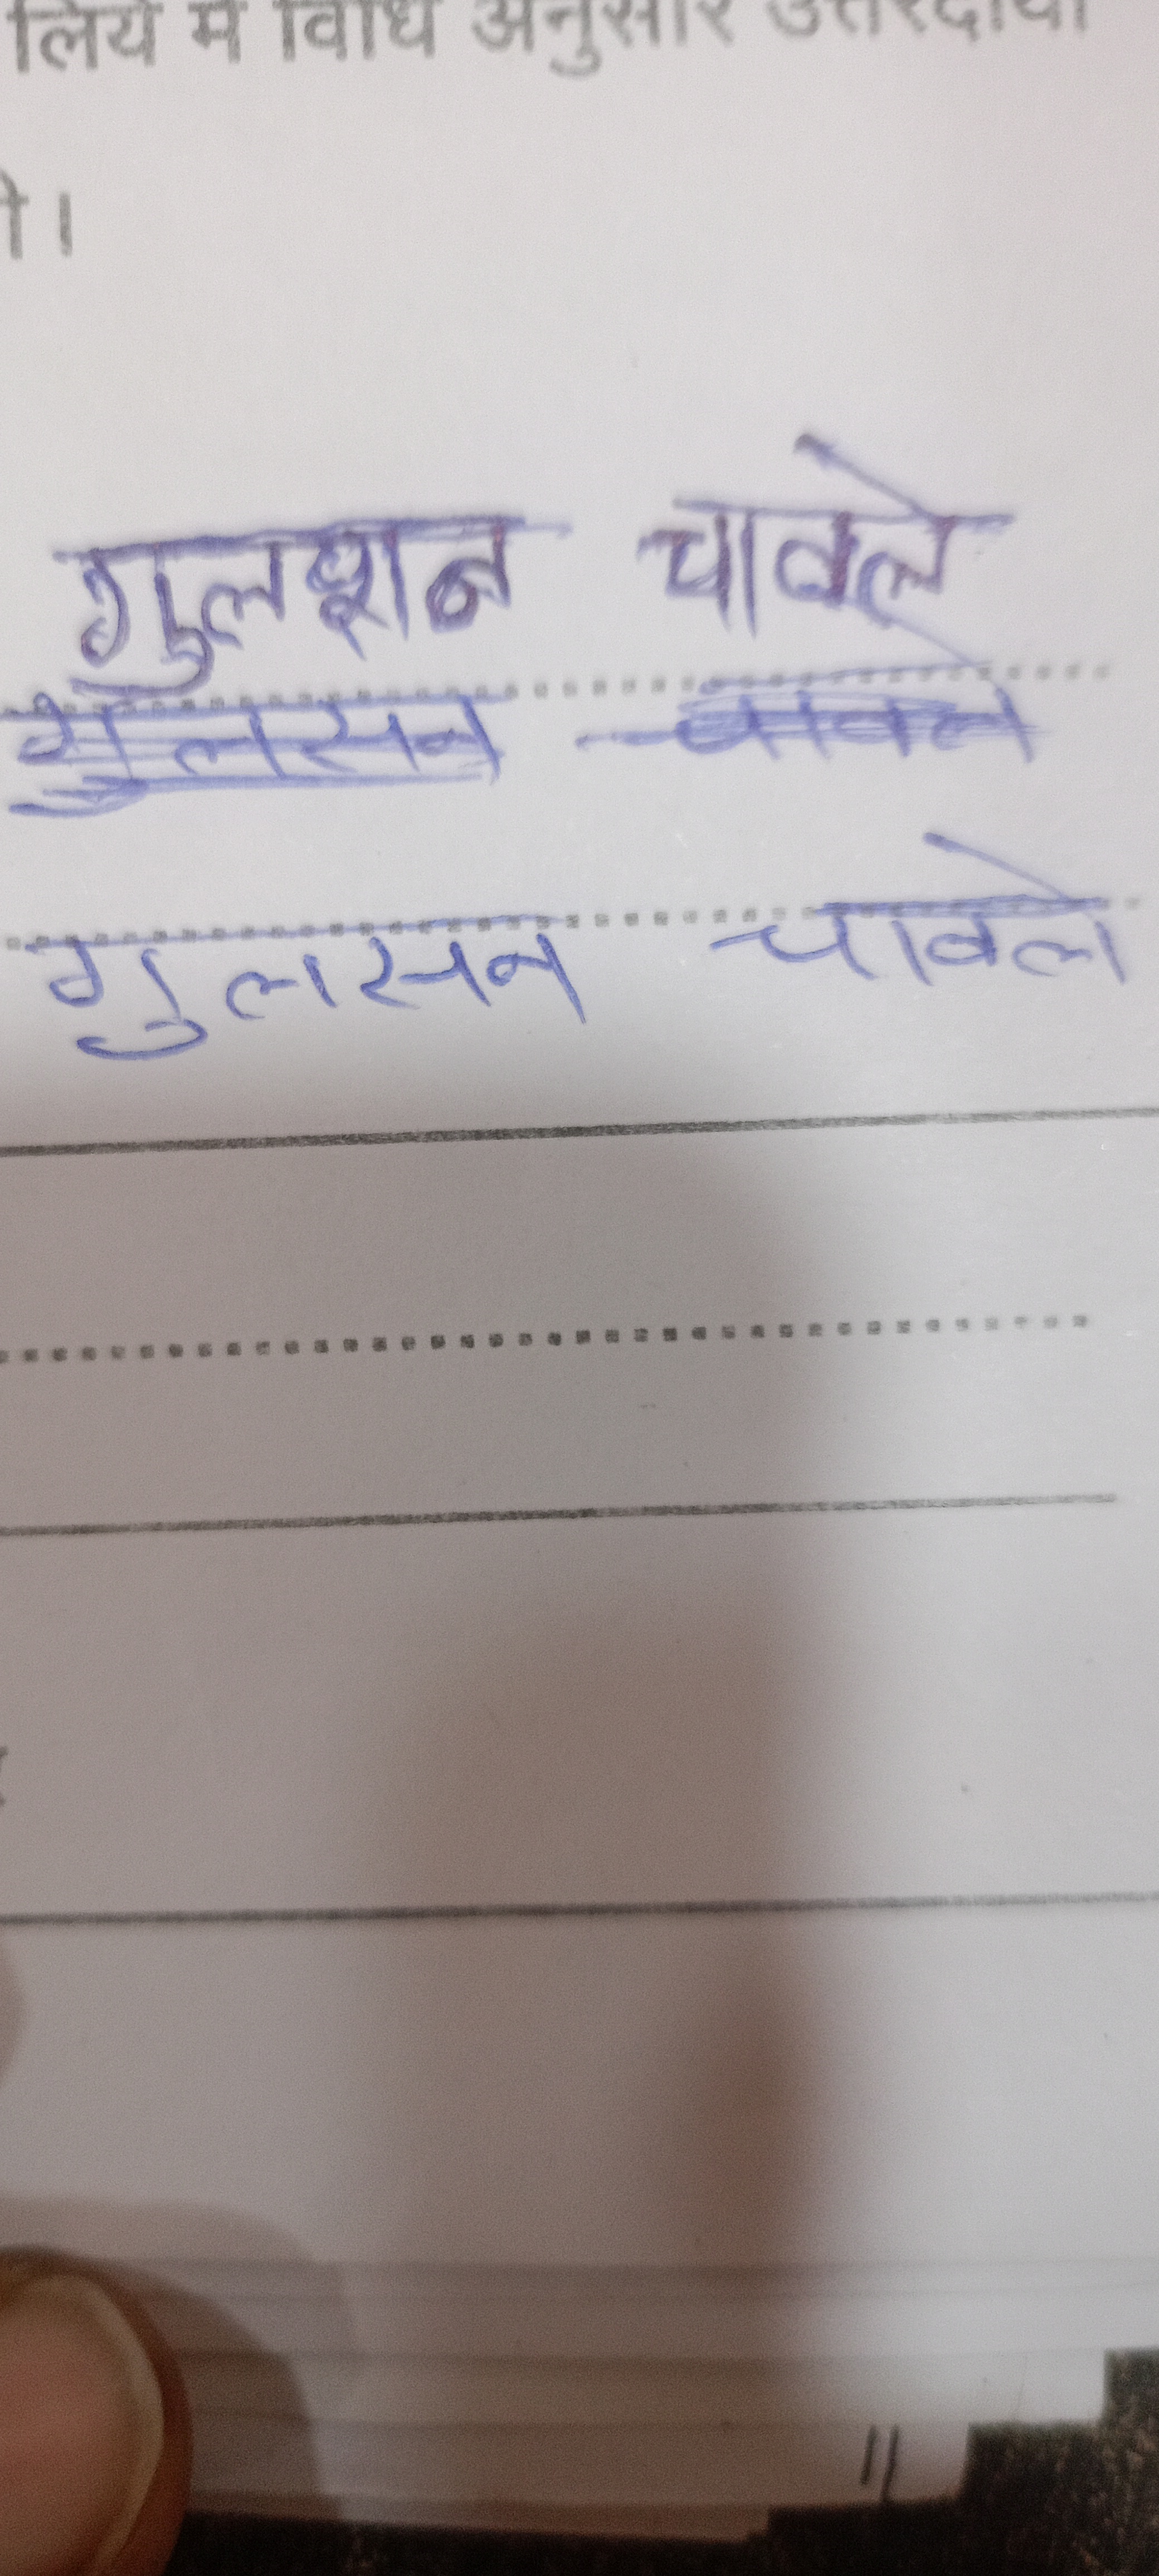 लिये में विधि अनुसार उत्तरदायी
गुलशन चावले
गुलसन चावले
गुलसन चावले